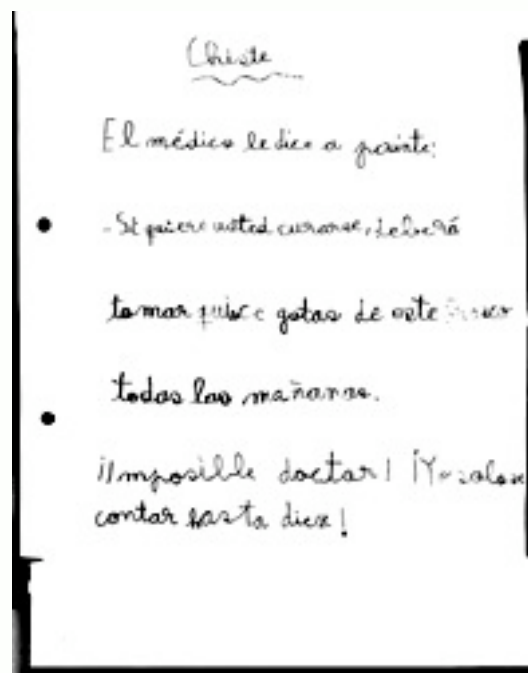 Chiste
El médico le dice a
- Si quiere usted curarse, deberá
tomar quince gotas de este
todas las mañanas.
¡Imposible doctor! ¡Yo solo se
contar hasta diez!